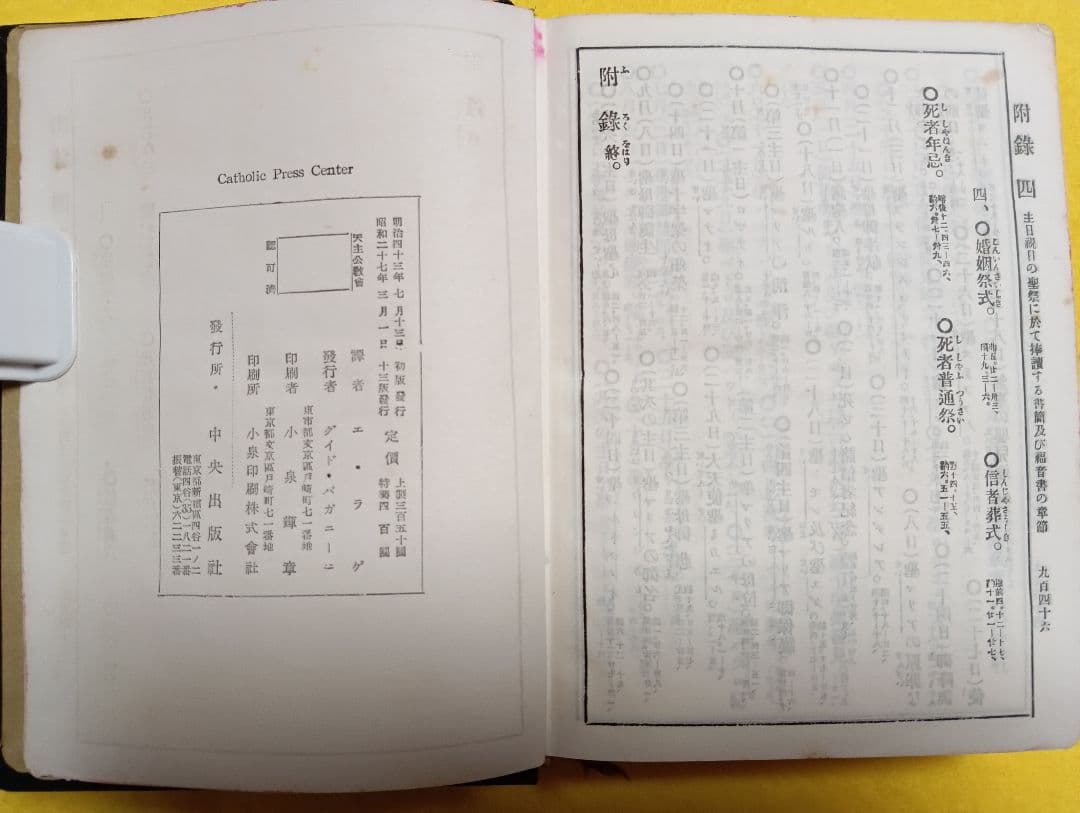 附錄 四 主日祝日の聖祭に於て捧讀する書簡及び福音書の章節 九百四十六
四、〇婚姻祭式。
〇信者葬式。
〇死者年忌。
〇死者普通祭。
附錄 終。
Catholic Press Center
明治四十三年 七月十三日 初版發行
昭和二十七年 三月一日 十三版發行
定價 上製三百五十圓
特製四百圓
天主公敎會
認可濟
譯者 エ・ラゲ
發行者 グイド・パガニーニ
東京都文京區戸崎町七一番地
印刷者 小泉輝章
東京都文京區戸崎町七一番地
印刷所 小泉印刷株式會社
發行所・中央出版社
東京都新宿區四谷一ノ二
電話四谷(35)一八二一番
振替(東京)六二二三三番